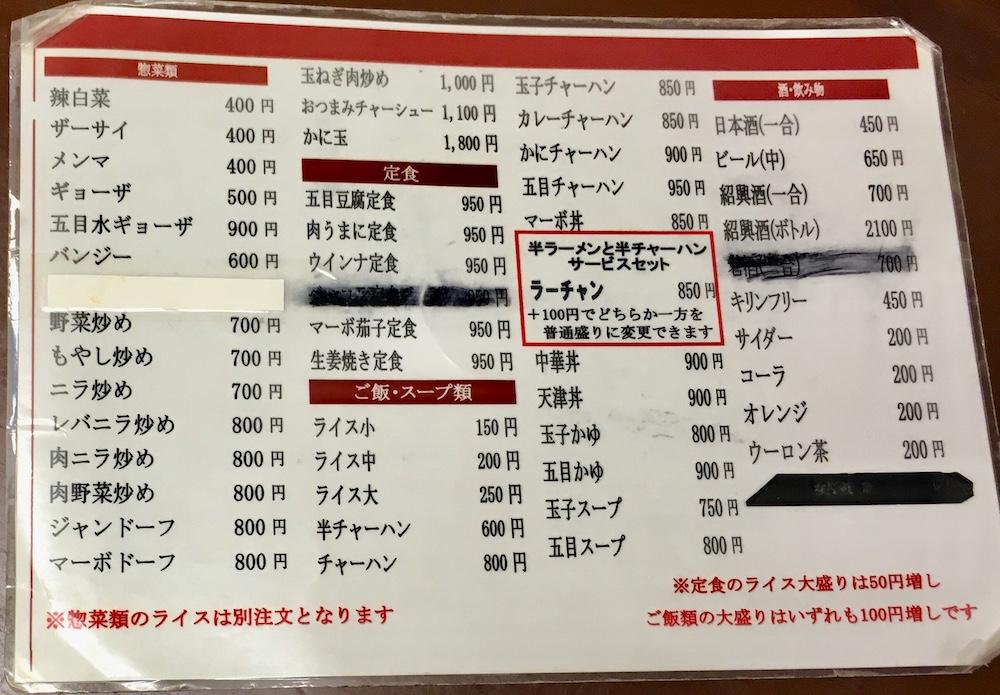 惣菜類
辣白菜 400円
ザーサイ 400円
メンマ 400円
ギョーザ 500円
五目水ギョーザ 900円
バンジー 600円
野菜炒め 700円
もやし炒め 700円
ニラ炒め 700円
レバニラ炒め 800円
肉ニラ炒め 800円
肉野菜炒め 800円
ジャンドーフ 800円
マーボドーフ 800円
※惣菜類のライスは別注文となります
玉ねぎ肉炒め 1,000円
おつまみチャーシュー 1,100円
かに玉 1,800円
定食
五目豆腐定食 950円
肉うまに定食 950円
ウインナ定食 950円
950円
マーボ茄子定食 950円
生姜焼き定食 950円
ご飯・スープ類
ライス小 150円
ライス中 200円
ライス大 250円
半チャーハン 600円
チャーハン 800円
玉子チャーハン 850円
カレーチャーハン 850円
かにチャーハン 900円
五目チャーハン 950円
マーボ丼 850円
半ラーメンと半チャーハン
サービスセット
ラーチャン 850円
+100円でどちらか一方を
普通盛りに変更できます
中華丼 900円
天津丼 900円
玉子かゆ 800円
五目かゆ 900円
玉子スープ 750円
五目スープ 800円
酒・飲み物
日本酒(一合) 450円
ビール(中) 650円
紹興酒(一合) 700円
紹興酒(ボトル) 2100円
700円
キリンフリー 450円
サイダー 200円
コーラ 200円
オレンジ 200円
ウーロン茶 200円
※定食のライス大盛りは50円増し
ご飯類の大盛りはいずれも100円増しです